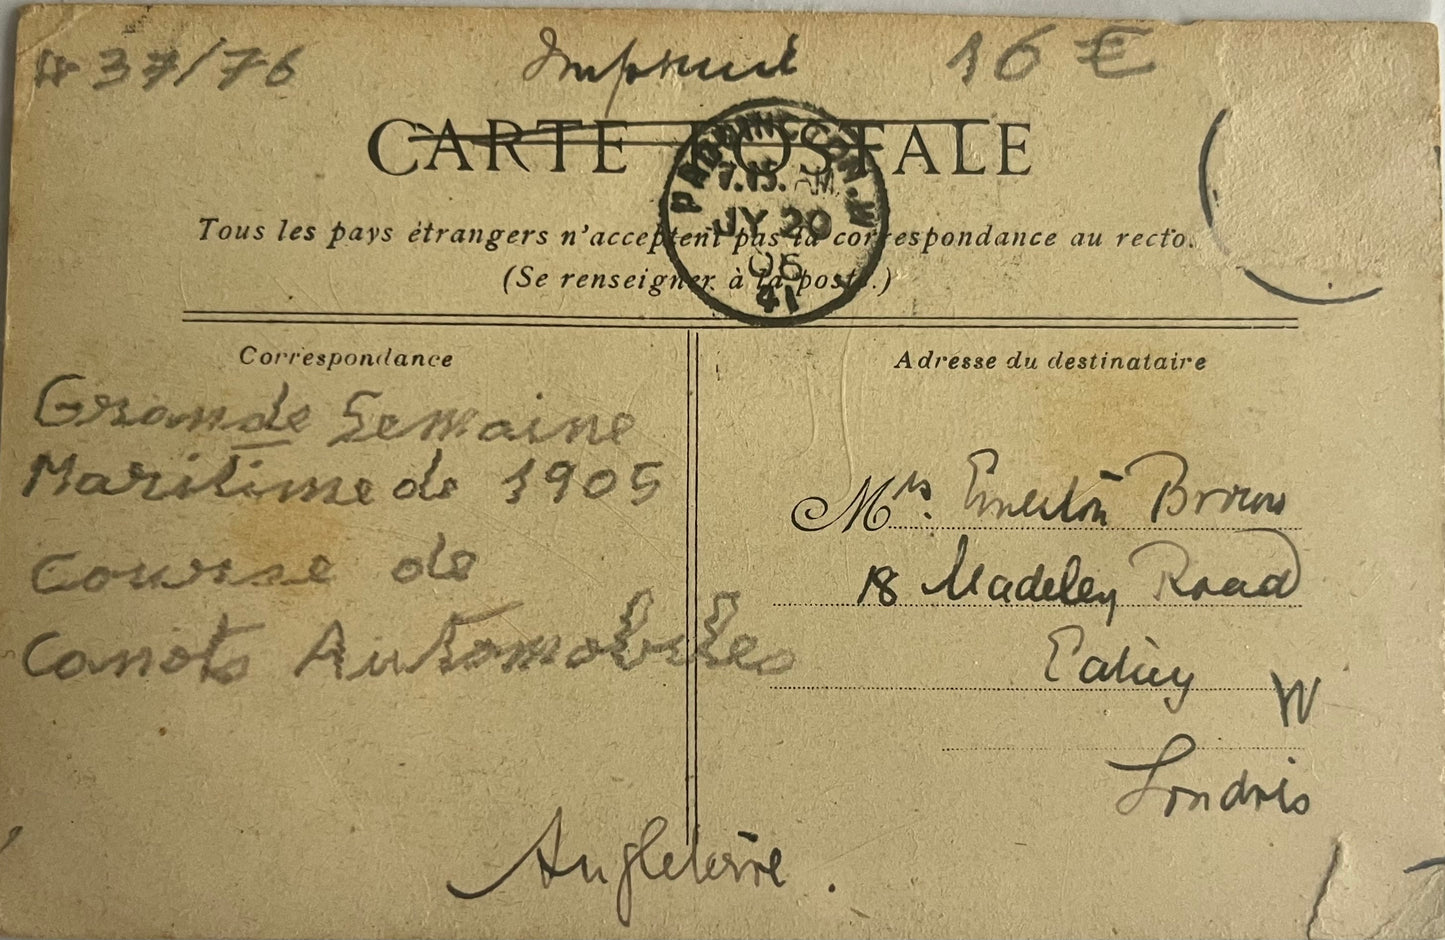 37/76
Imprimé
16 €
CARTE POSTALE
PADDINGTON. W
7.15. AM
JY 20
05
41
Tous les pays étrangers n'acceptent pas la correspondance au recto.
(Se renseigner à la poste.)
Correspondance
Grande Semaine
Maritime de 1905
Course de
Canots Automobiles
Adresse du destinataire
Mrs. Brown
18 Madeley Road
Ealing W
Londres
Angleterre.